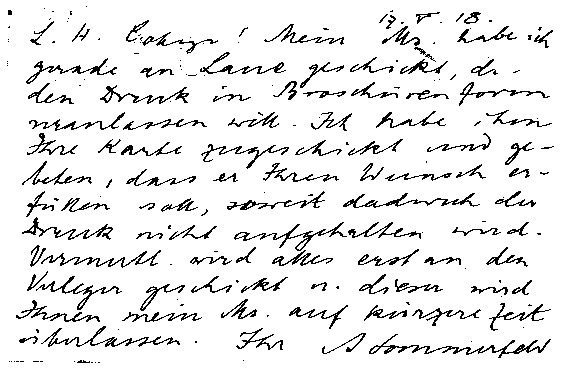 17. V. 18.
L. H. College! Mein Ms. habe ich
gerade an Laue geschickt, der
den Druck in Broschürenform
veranlassen will. Ich habe ihm
Ihre Karte zugeschickt und ge-
beten, dass er Ihren Wunsch er-
füllen soll, soweit dadurch der
Druck nicht aufgehalten wird.
Vermutl. wird alles erst an den
Verleger geschickt u. dieser wird
Ihnen mein Ms. auf kürzere Zeit
überlassen. Ihr A Sommerfeld